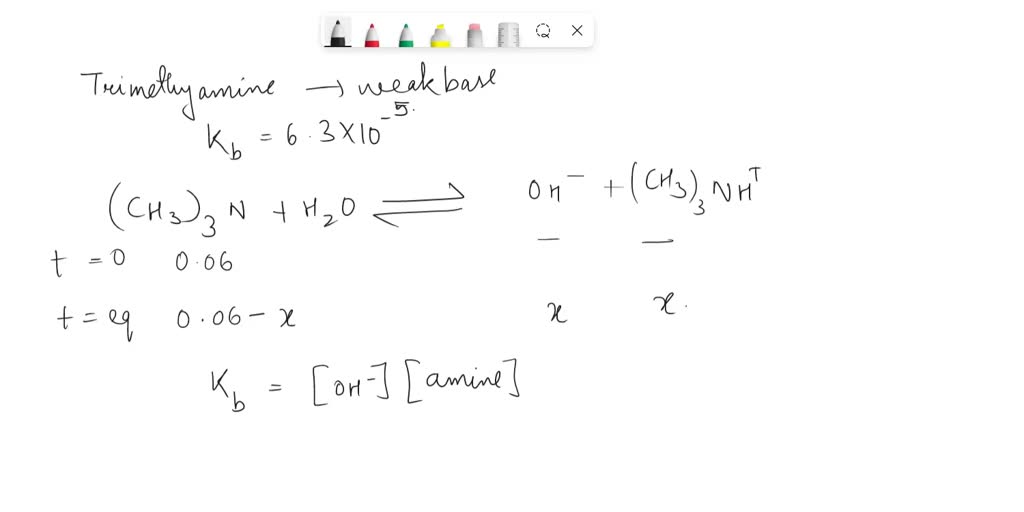 Trimethyamine → weak base
K_b = 6.3 × 10^-5.
(CH_3)_3 N + H_2O ⇌ OH^- + (CH_3)_3 NH^+
t = 0 0.06 — —
t = eq 0.06 - x x x.
K_b = [OH^-] [amine]